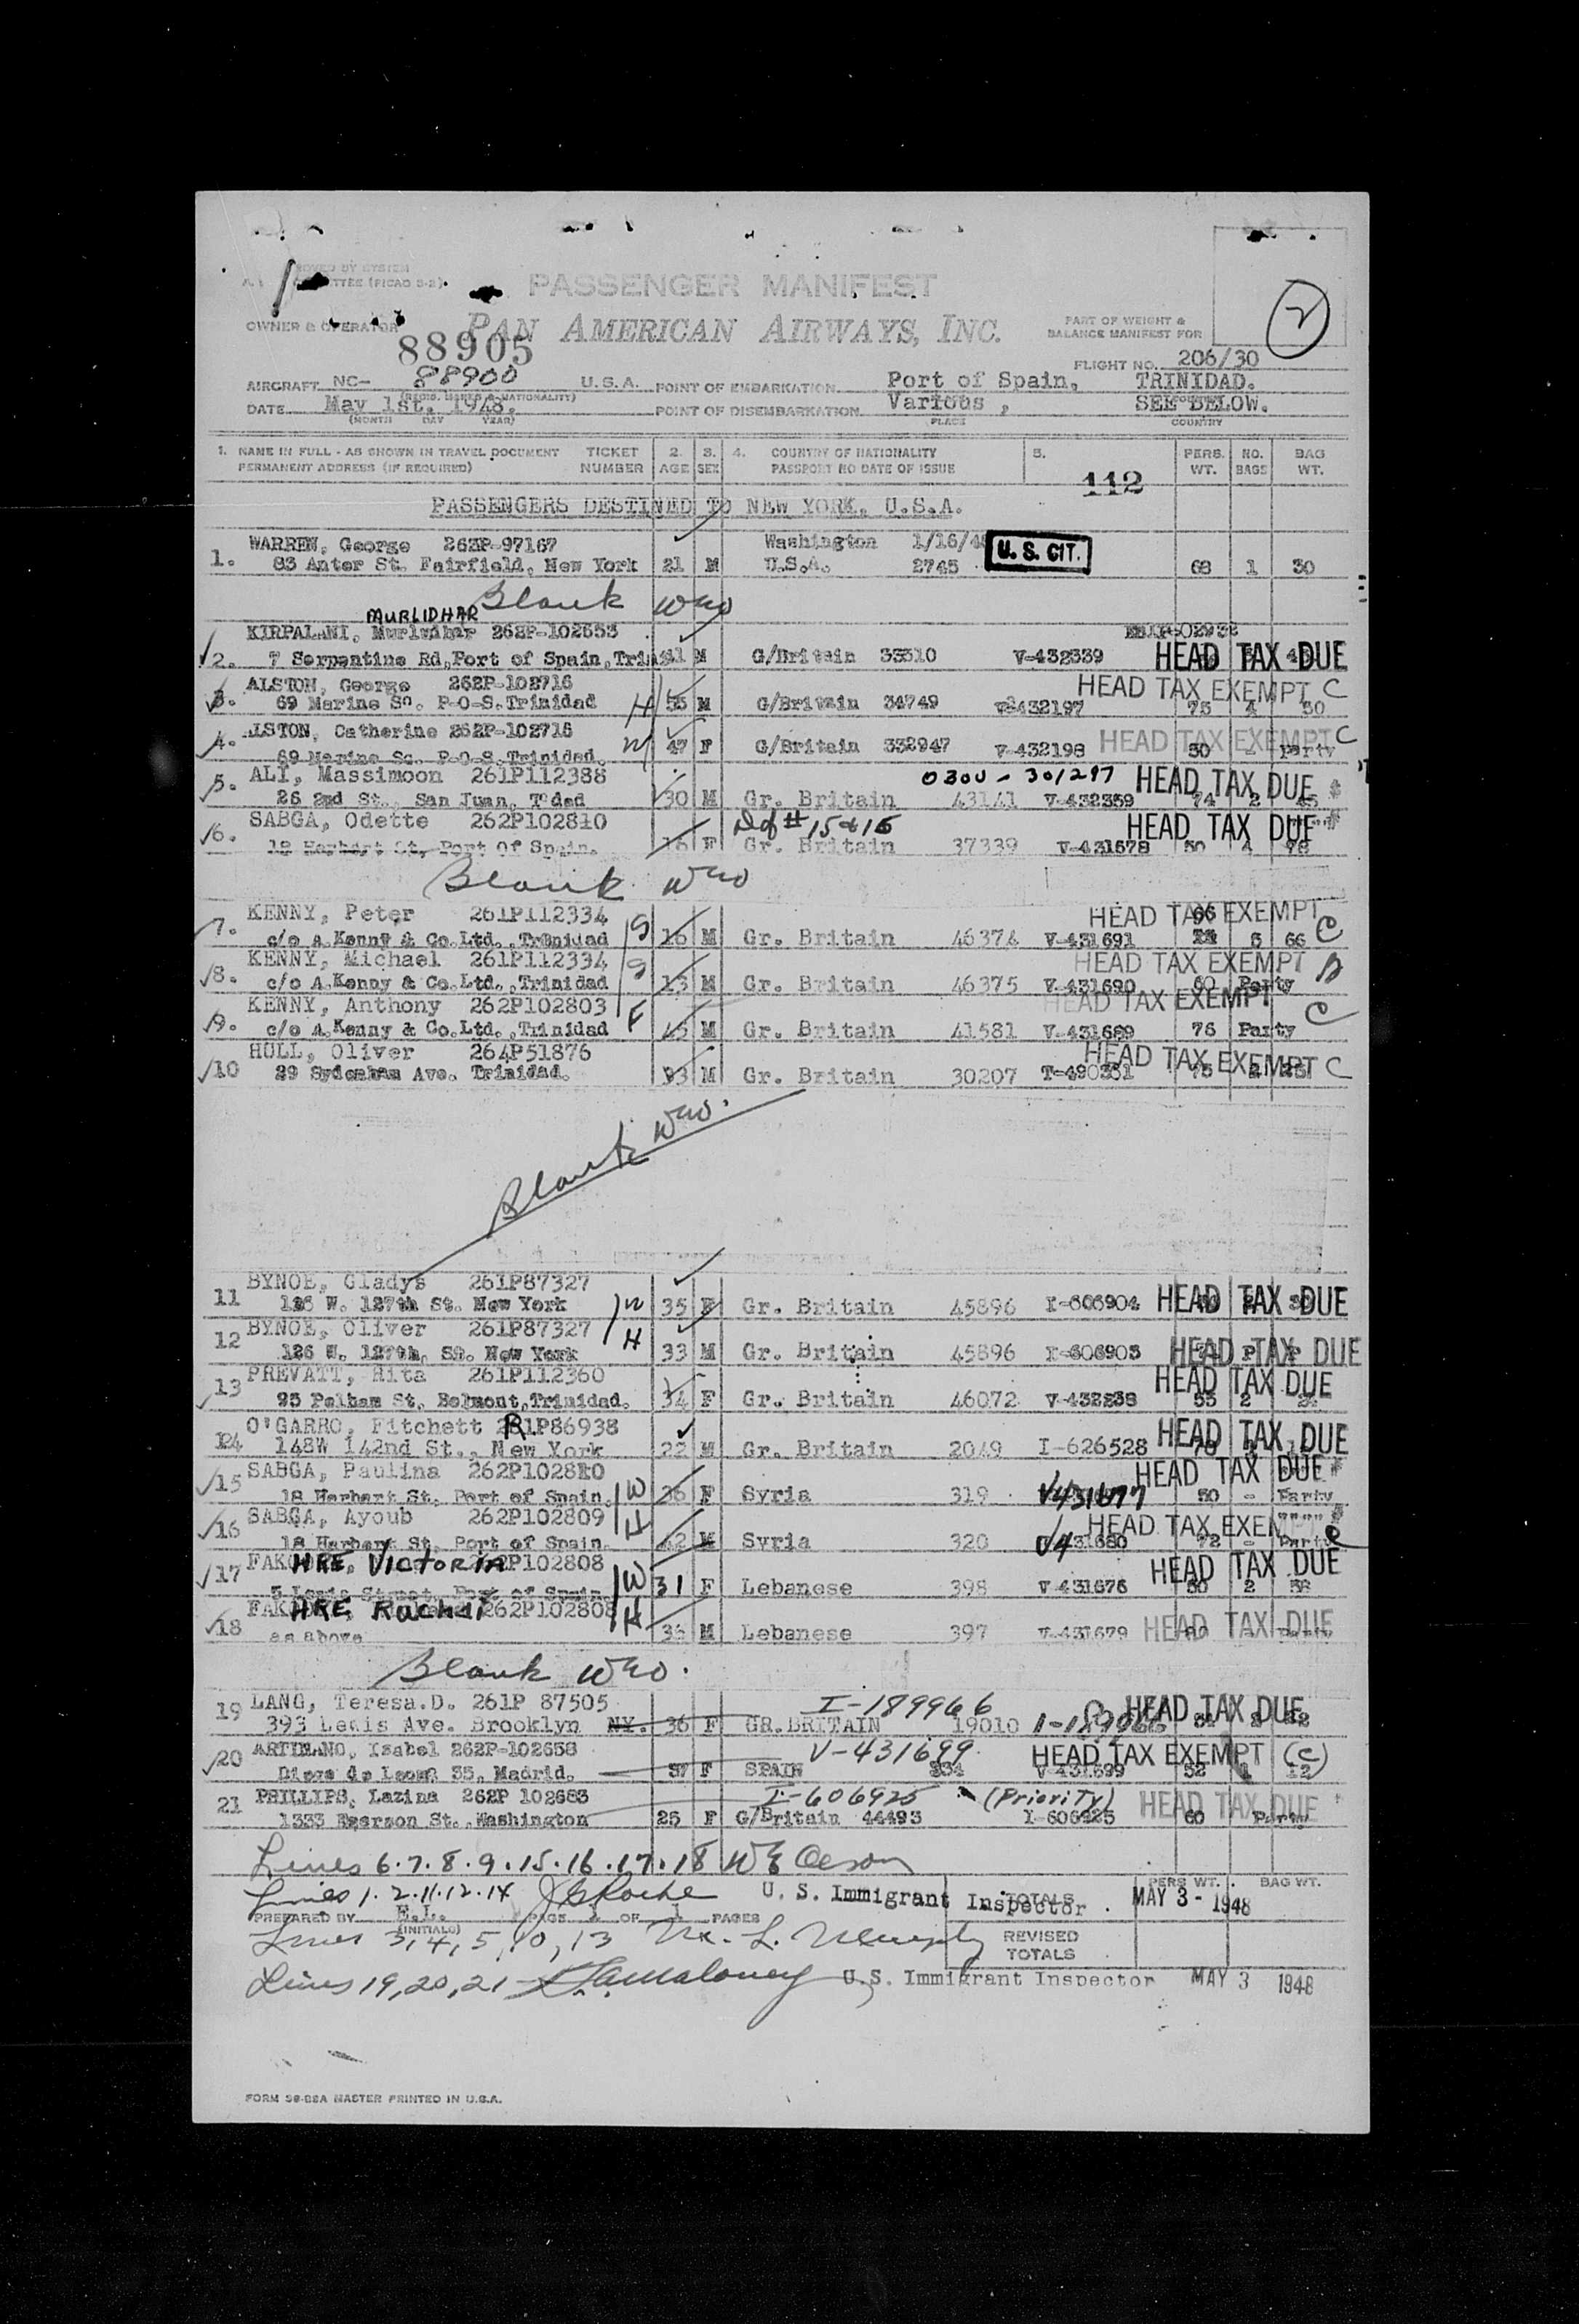 PASSENGER MANIFEST
OWNER & OPERATOR PAN AMERICAN AIRWAYS, INC.
PART OF WEIGHT &
BALANCE MANIFEST FOR
2
88905
FLIGHT NO. 206/30
AIRCRAFT NC- 88900 U.S.A. POINT OF EMBARKATION Port of Spain, TRINIDAD.
DATE May 1st. 1948. POINT OF DISEMBARKATION Various , SEE BELOW.
(MONTH DAY YEAR) PLACE COUNTRY
1. NAME IN FULL - AS SHOWN IN TRAVEL DOCUMENT TICKET 2. 3. 4. COUNTRY OF NATIONALITY 5. PERS. NO. BAG
PERMANENT ADDRESS (IF REQUIRED) NUMBER AGE SEX PASSPORT NO DATE OF ISSUE WT. BAGS WT.
112
PASSENGERS DESTINED TO NEW YORK, U.S.A.
WARREN, George 262P-97167 Washington 1/16/48 U.S. CIT.
1. 83 Anter St. Fairfield, New York 21 M U.S.A. 2745 68 1 30
Blank
MURLIDHAR
KIRPALANI, 262P-102653
2. 7 Serpentine Rd, Port of Spain, 41 M G/Britain 33310 V-432339 HEAD TAX DUE
ALSTON, George 262P-102716 HEAD TAX EXEMPT C
3. 69 Marine Sq. P-O-S. Trinidad H 55 M G/Britain 34749 432197 75 4 50
ALSTON, Catherine 262P-102716
4. 69 Marine Sq. P-O-S. Trinidad. W 47 F G/Britain 332947 V-432198 HEAD TAX EXEMPT C 50 - Party
ALI, Massimoon 261P112388 0300-301297 HEAD TAX DUE
5. 26 2nd St., San Juan, T'dad 30 M Gr. Britain 43141 V-432359 74 2 45
SABGA, Odette 262P102810 HEAD TAX DUE
6. 18 Herbert St, Port of Spain. 16 F Gr. Britain 37339 V-431678 50 4 78
Blank
KENNY, Peter 261P112334 HEAD TAX EXEMPT C
7. c/o A Kenny & Co.Ltd., Trinidad S 16 M Gr. Britain 46374 V-431691 5 66
KENNY, Michael 261P112334 HEAD TAX EXEMPT
8. c/o A.Kenny & Co.Ltd., Trinidad S 13 M Gr. Britain 46375 V-431690 60 Party
KENNY, Anthony 262P102803 HEAD TAX EXEMPT C
9. c/o A.Kenny & Co.Ltd., Trinidad F 45 M Gr. Britain 41581 V-431689 76 Party
HULL, Oliver 264P51876 HEAD TAX EXEMPT C
10 29 Sydenham Ave. Trinidad. M Gr. Britain 30207 T-490351
Blank
BYNOE, Gladys 261P87327
11 126 W. 127th St. New York W 35 F Gr. Britain 45896 I-606904 HEAD TAX DUE
BYNOE, Oliver 261P87327
12 126 W. 127th, St. New York H 33 M Gr. Britain 45896 I-606905 HEAD TAX DUE
PREVATT, Rita 261P112360 HEAD TAX DUE
13 95 Pelham St, Belmont, Trinidad. 34 F Gr. Britain 46072 V-432238 55 2
O'GARRO, Fitchett R 261P86938
14 148W 142nd St., New York 22 M Gr. Britain 2049 I-626528 HEAD TAX DUE
SABGA, Paulina 262P102810 HEAD TAX DUE
15 18 Herbert St. Port of Spain. W 36 F Syria 319 V431677 50 - Party
SABGA, Ayoub 262P102809 HEAD TAX EXEMPT
16 18 Herbert St. Port of Spain. H 42 M Syria 320 V431680 72 - Party
FAKHRE, Victoria 262P102808 HEAD TAX DUE
17 5 Lewis Street, Port of Spain W 31 F Lebanese 398 V-431676 50 2
FAKHRE, 262P102808
18 as above H 36 M Lebanese 397 V-431679 HEAD TAX DUE
Blank
19 LANG, Teresa.D. 261P 87505 I-189966 HEAD TAX DUE
393 Lewis Ave. Brooklyn NY. 36 F GR.BRITAIN 19010 I-189966
20 262P-102658 V-431699 HEAD TAX EXEMPT (C)
35, Madrid. 37 F SPAIN 334 V-431699 52 12
21 PHILLIPS, Lazina 262P 102683 I-606925 (Priority) HEAD TAX DUE
1333 St., Washington 25 F G/Britain 44493 I-606925 60 Party
Lines 6.7.8.9.15.16.17.18
Lines 1.2.11.12.14 J G Roche U. S. Immigrant Inspector MAY 3 - 1948
TOTALS PERS WT. BAG WT.
PREPARED BY E.L. PAGE 1 OF 1 PAGES
(INITIALS)
Lines 3,4,5,10,13
REVISED
TOTALS
Lines 19,20,21 U.S. Immigrant Inspector MAY 3 1948
FORM 38-82A MASTER PRINTED IN U.S.A.